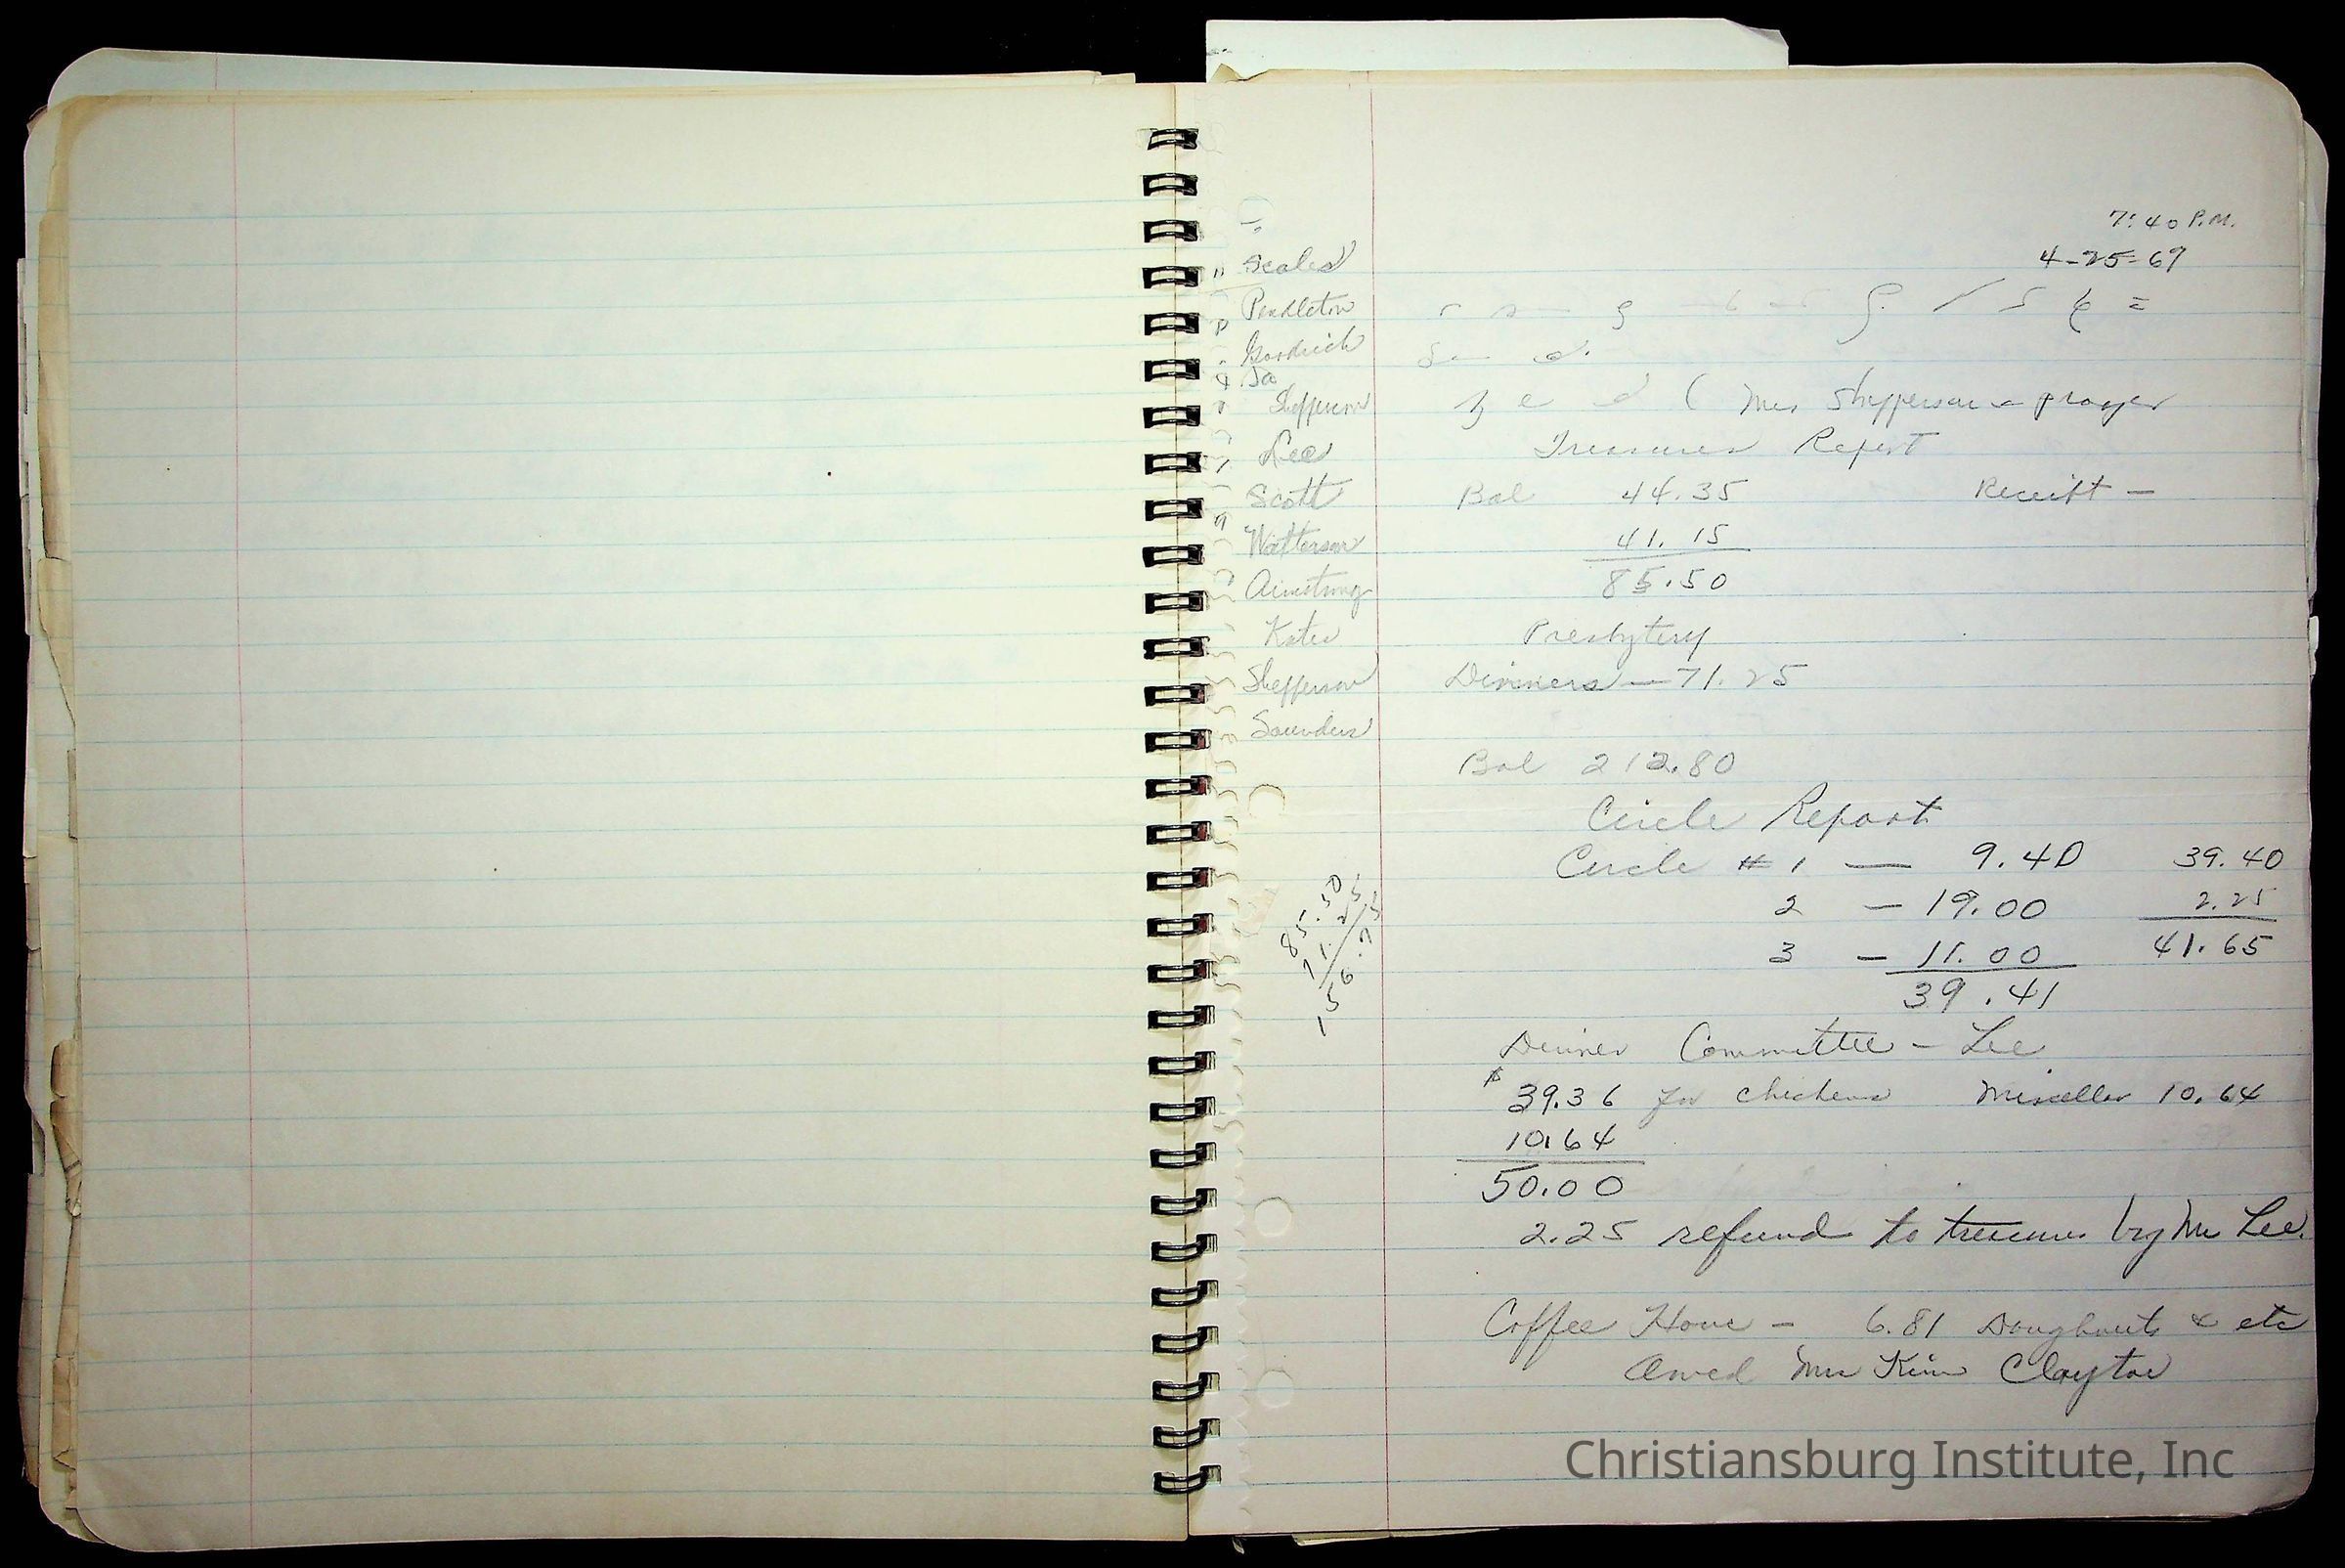 7:40 P.M.
4-25-69
Scales
Pendleton
Goodrich
Shepperson
Lee
Scott
Watterson
Armstrong
Kates
Shepperson
Saunders
( Mrs Shepperson prayer
Treasurer Report
Bal 44.35 Receipt —
41.15
85.50
Presbytery
Dinners — 71.25
Bal 212.80
Circle Report
Circle # 1 — 9.40 39.40
2 — 19.00 2.25
3 — 11.00 41.65
39.41
85.50
71.25
156.75
Dinner Committee - Lee
$ 39.36 for chickens Miscellor 10.64
10.64
50.00
2.25 refund to treasurer by Mr Lee.
Coffee Hour - 6.81 Doughnuts & etc
Owed Mrs Kim Claytor
Christiansburg Institute, Inc